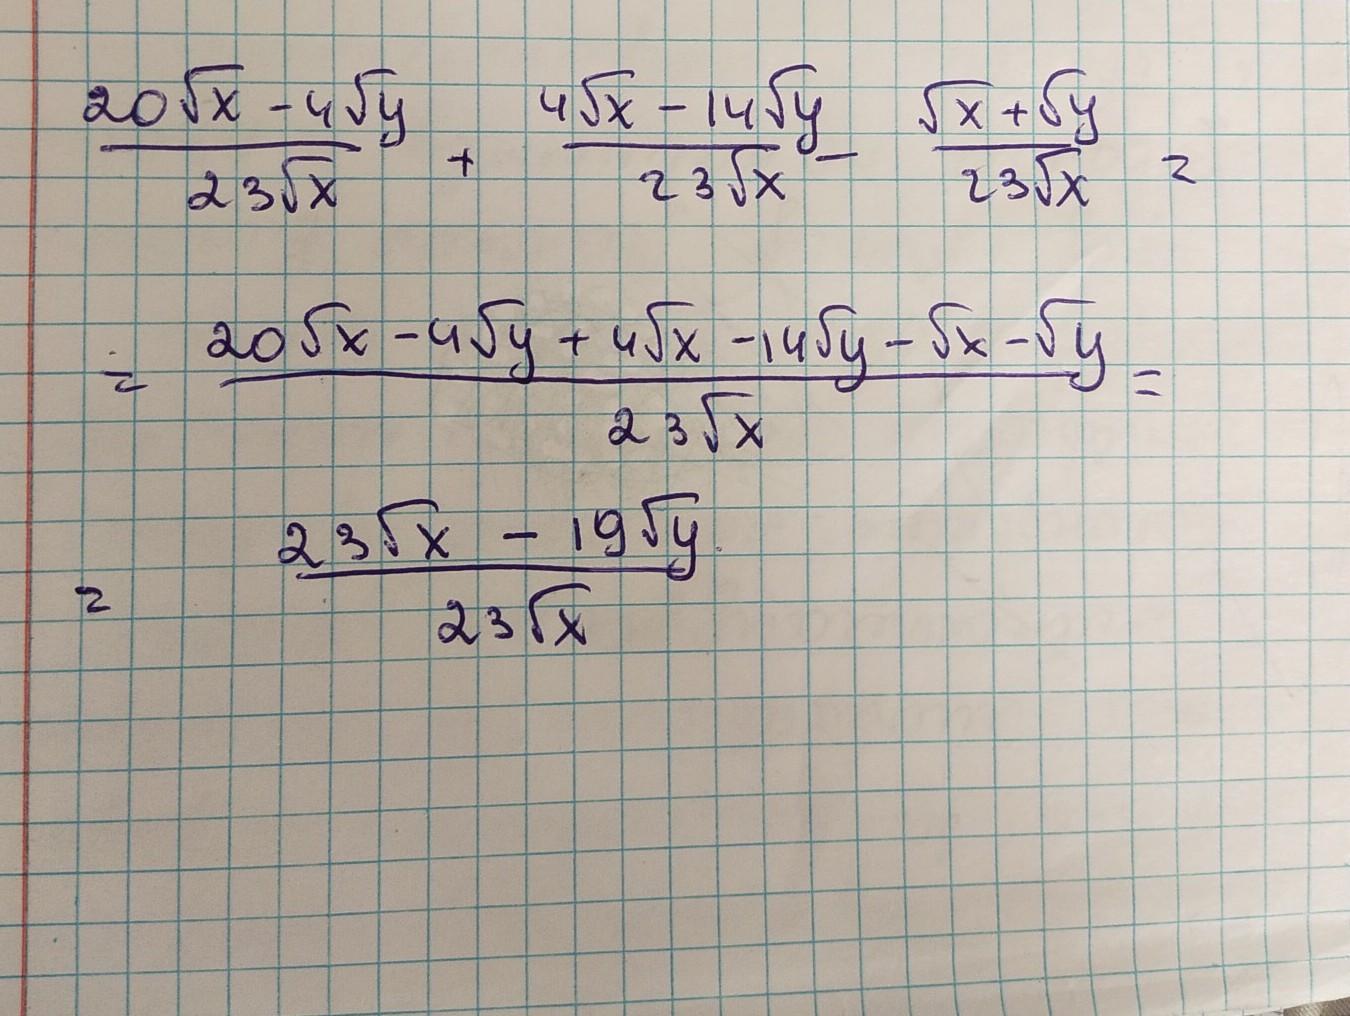 (20√x - 4√y)/(23√x) + (4√x - 14√y)/(23√x) - (√x + √y)/(23√x) =
= (20√x - 4√y + 4√x - 14√y - √x - √y)/(23√x) =
= (23√x - 19√y)/(23√x)